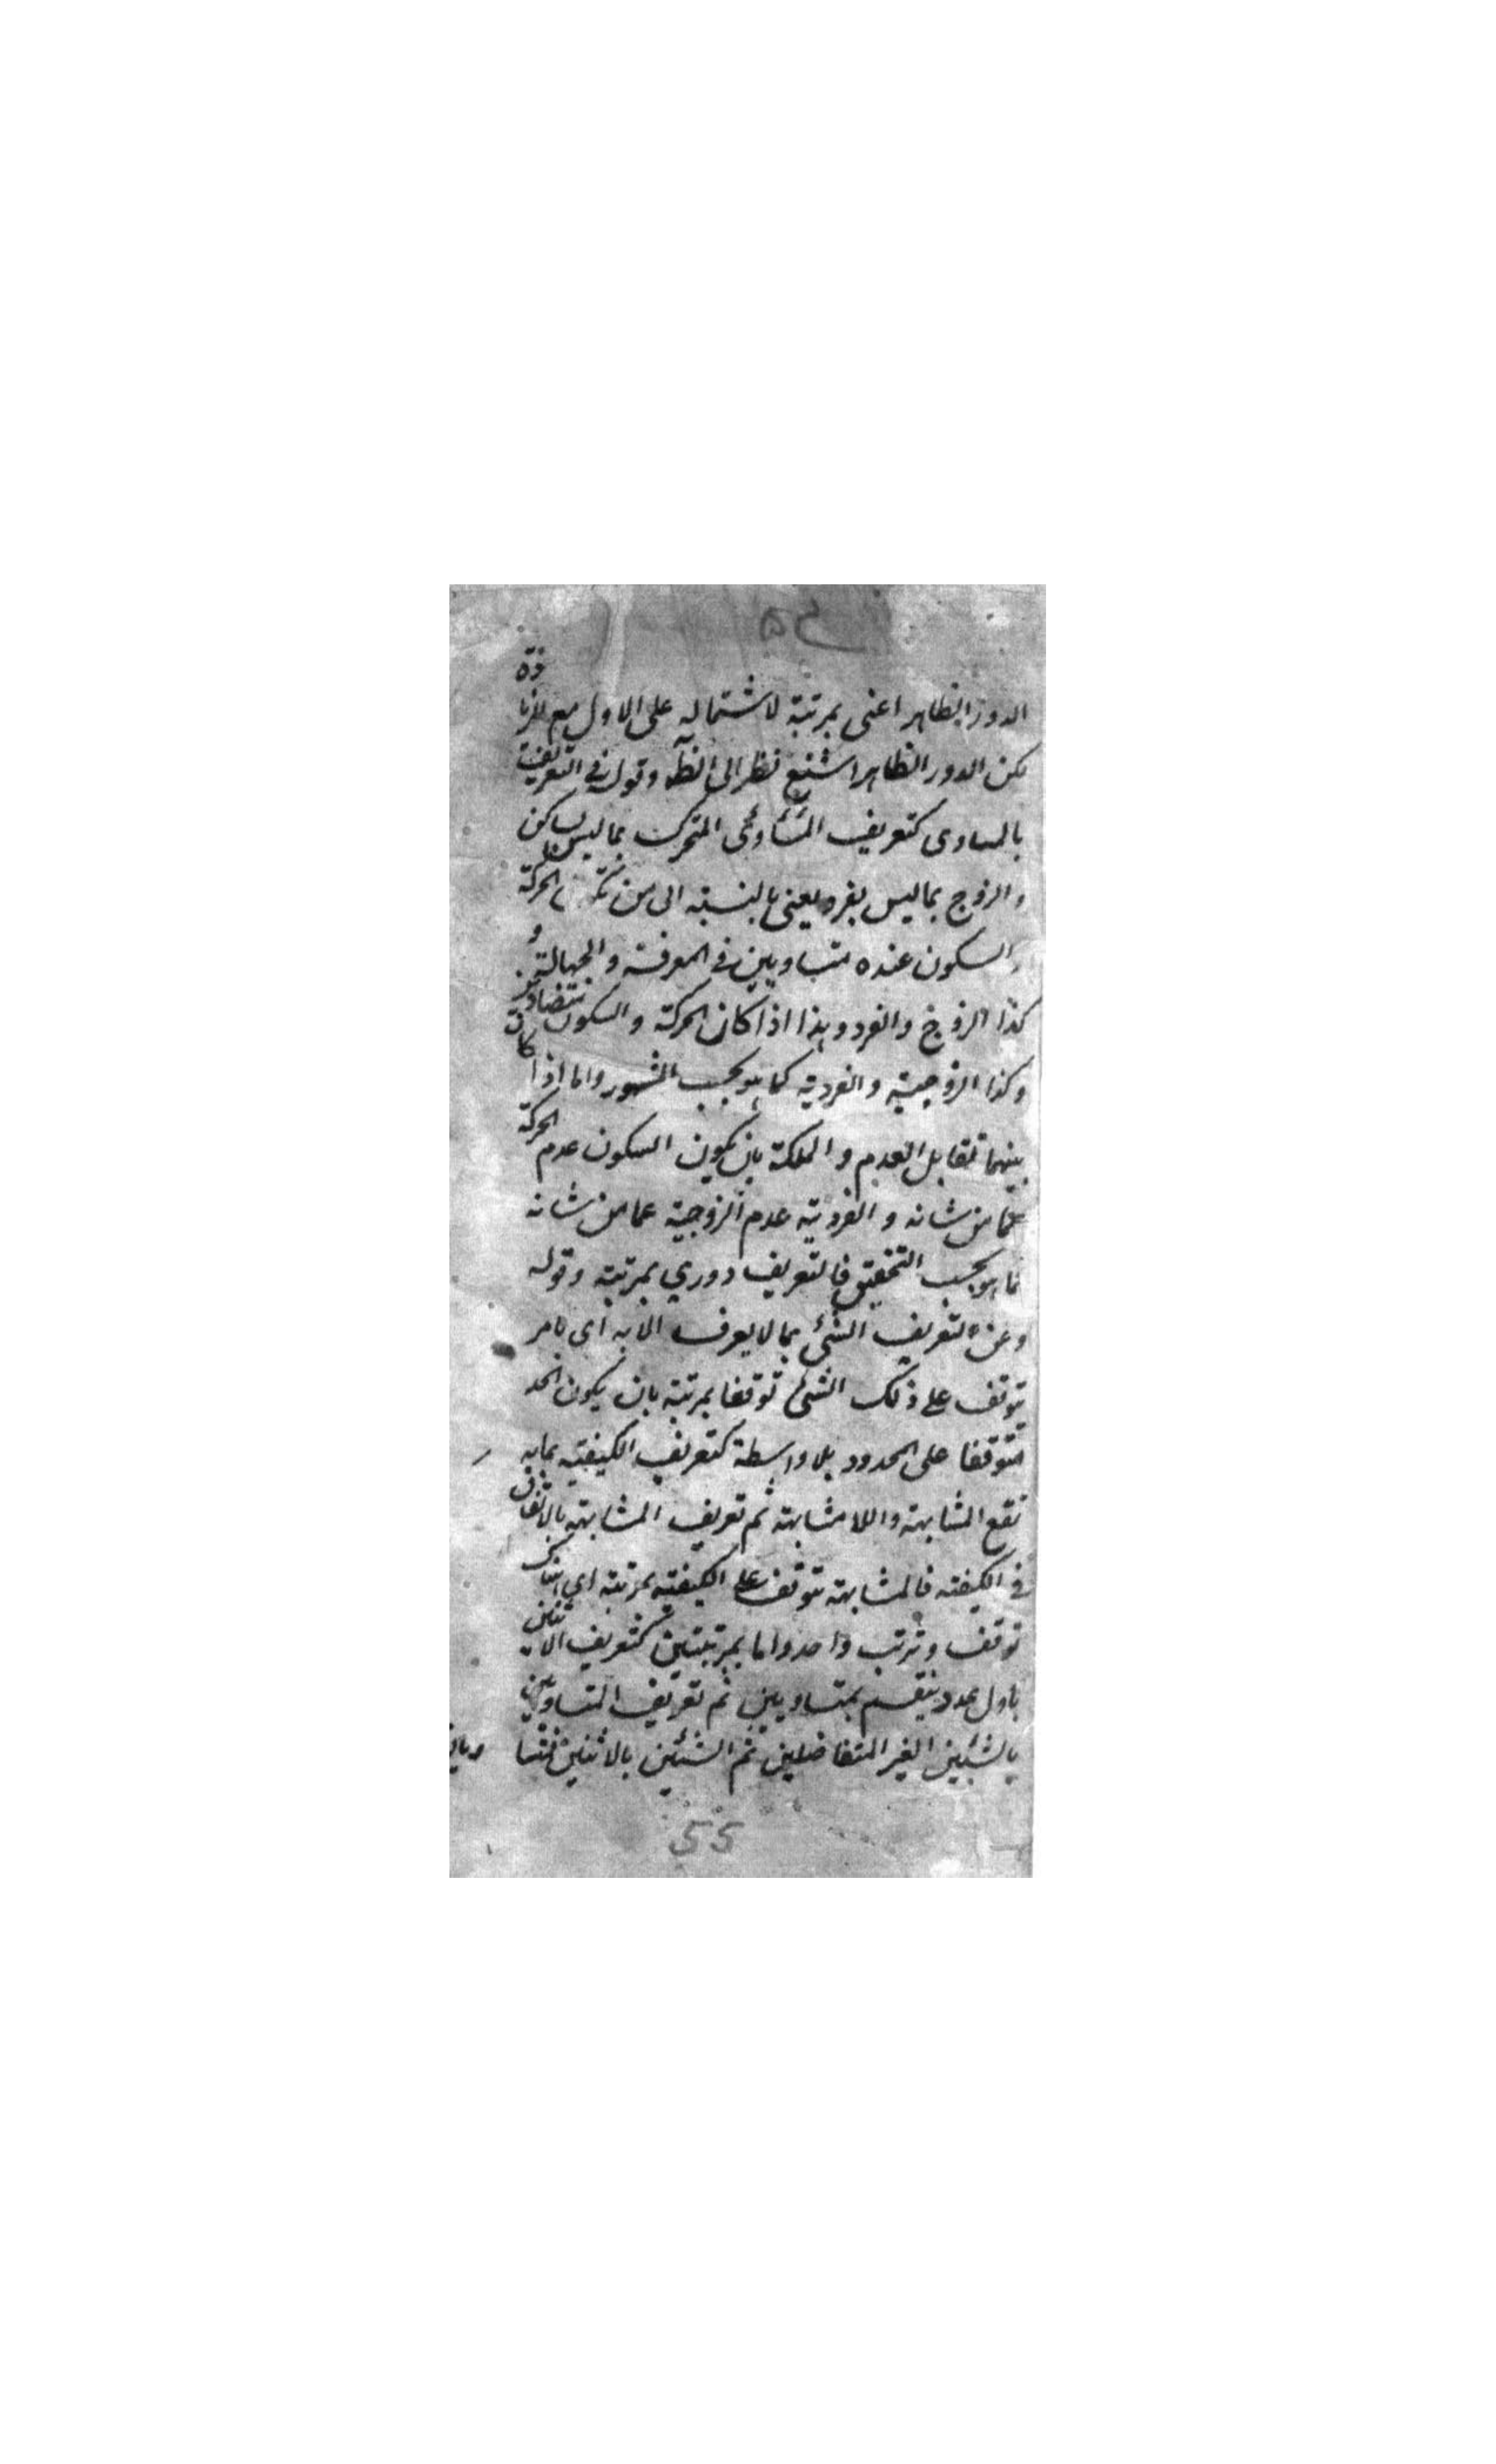 ۵۵
الدور الظاهر اعنى بمرتبة لاشتماله على الاول مع الزيادة
لكن الدور الظاهر اشنع نظرا الى الظ وقوله فى التعريف
بالمساوى كتعريف المتحرك بما ليس بساكن
والزوج بما ليس بفرد يعنى بالنسبة الى من الحركة
والسكون عنده متساويين فى المعرفة والجهالة و
كذا الزوج والفرد وهذا اذا كان الحركة والسكون متضادين
وكذا الزوجية والفردية كما هو بحسب المشهور واما اذا كان
بينهما تقابل العدم والملكة بان يكون السكون عدم الحركة
عما من شانه والفردية عدم الزوجية عما من شانه
كما هو بحسب التحقيق فالتعريف دورى بمرتبة وقوله
وعن تعريف الشئ بما لا يعرف الا به اى بامر
يتوقف على ذلك الشئ توقفا بمرتبة بان يكون الحد
متوقفا على المحدود بلا واسطة كتعريف الكيفية بما به
تقع المشابهة واللامشابهة ثم تعريف المشابهة بالاتفاق
فى الكيفية فالمشابهة تتوقف على الكيفية بمرتبة اى
توقف وترتب واحد واما بمرتبتين كتعريف الاثنين
باول عدد ينقسم بمتساويين ثم تعريف المتساويين
بالشيئين الغير المتفاضلين ثم الشيئين بالاثنين
55